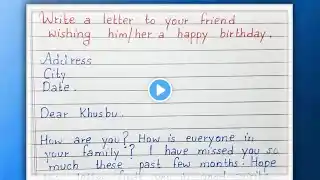 Write a letter to your friend
wishing him/her a happy birthday.
Address
City
Date.
Dear Khusbu,
How are you? How is everyone in
your family? I have missed you so
much these past few months. Hope